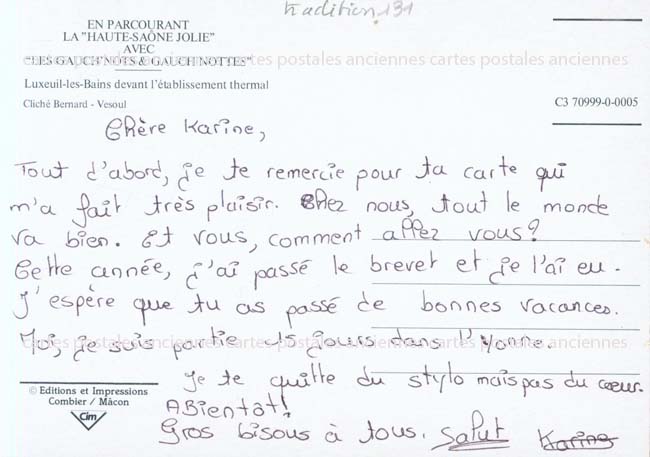 tradition 131
EN PARCOURANT
LA "HAUTE-SAÔNE JOLIE"
AVEC
"LES GAUCH'NOTS & GAUCH'NOTTES"
cartes postales anciennes cartes postales anciennes
Luxeuil-les-Bains devant l'établissement thermal
Cliché Bernard - Vesoul
C3 70999-0-0005
Chère Karine,
Tout d'abord, je te remercie pour ta carte qui
m'a fait très plaisir. Chez nous, tout le monde
va bien. Et vous, comment allez vous?
Cette année, j'ai passé le brevet et je l'ai eu.
J'espère que tu as passé de bonnes vacances.
Moi, je suis partie 15 jours dans l'Yonne.
cartes postales anciennes cartes postales anciennes
Je te quitte du stylo mais pas du coeur.
© Editions et Impressions
Combier / Mâcon
Cim
ABientôt!
Gros bisous à tous. Salut Karine